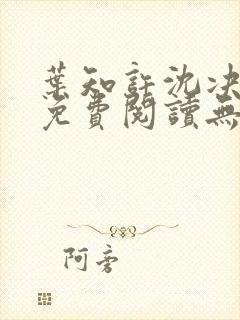 葉知許沈決
免費閱讀無
阿旁